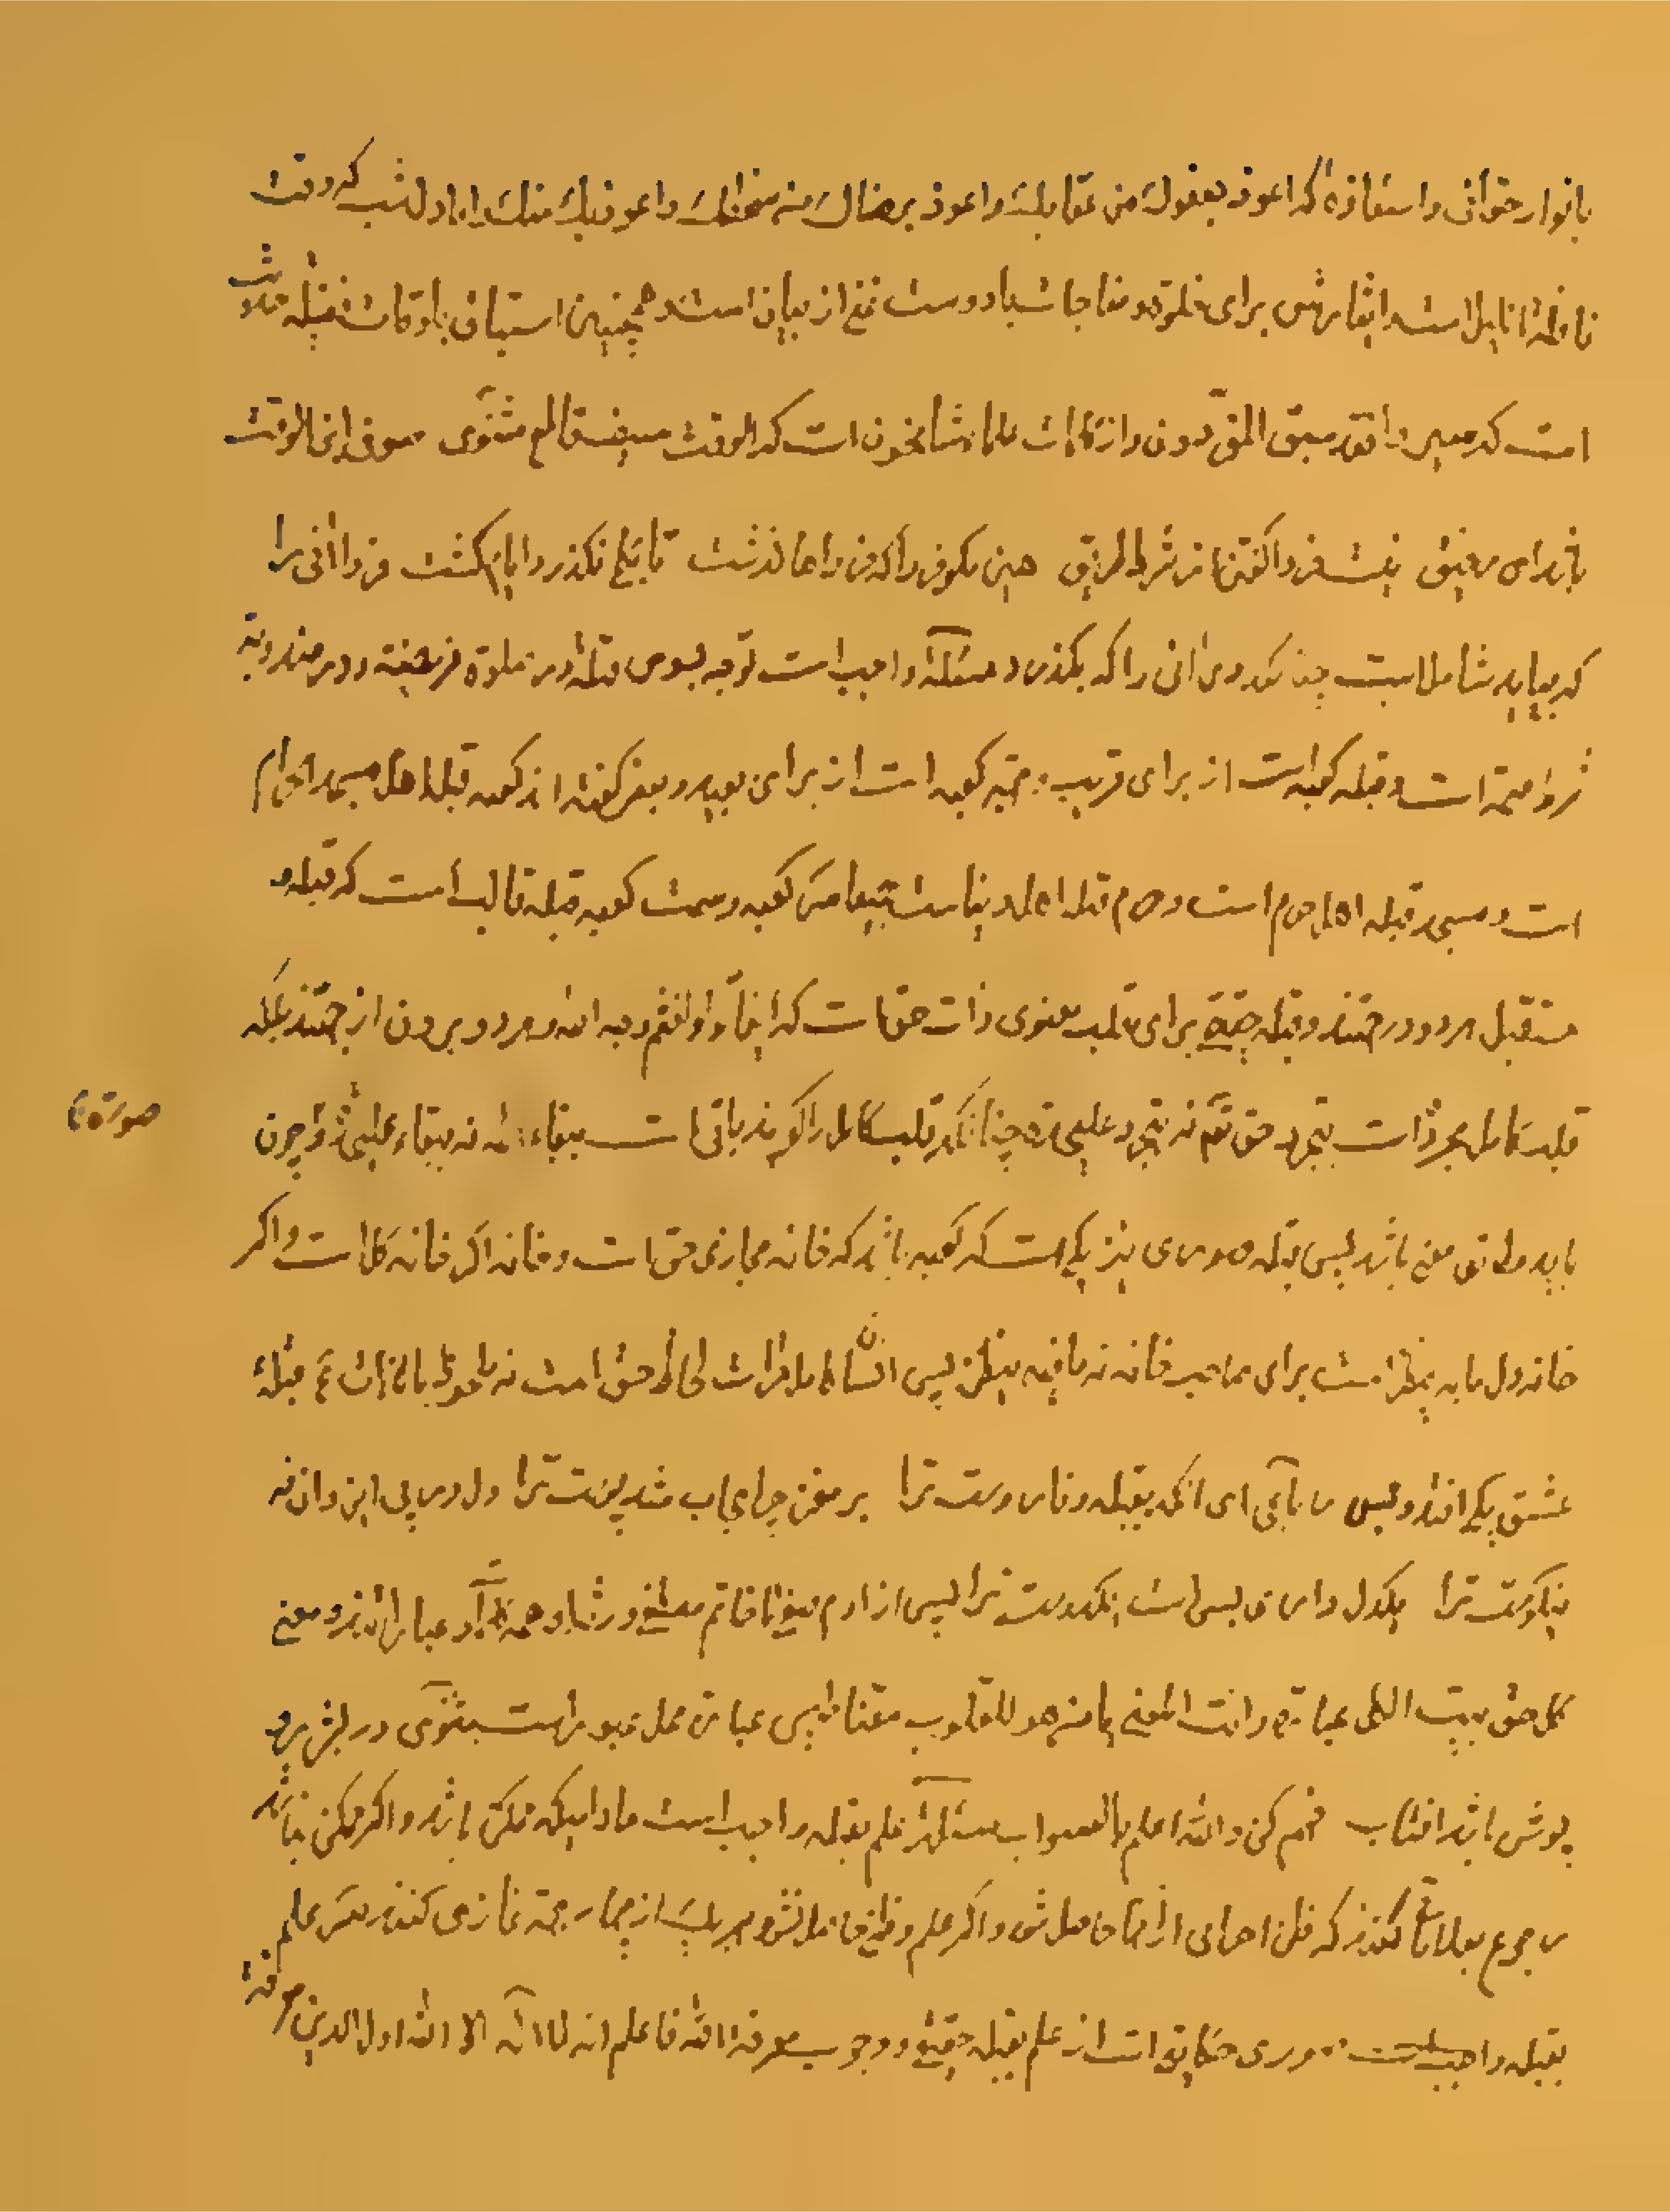 بانوار حقانی و استعاذهٔ که اعوذ بعفوك من عقابك و اعوذ برضاك من سخطك و اعوذ بك منك و اما دل شب که وقت
نافلهٔ است برای خلوة و مناجات با دوست غنی از بیان است و همچنین استباق باوقات فضیلة صلاة
است که سیروا فقد سبق المفردون و از کلمات مشایخ است که الوقت سیف قاطع مثنوی صوفی ابن الوقت
باشد ای رفیق نیست فردا گفتن از شرط طریق هین مگو فردا که فرداها گذشت تا بکلی نگذرد ایام کشت فردا انی را
که بیاید شامل است چنانکه دی انی را که بگذرد مسئلهٌ واجب است توجه بسوی قبله در صلوة فریضه و در مندوبه
شرط صحة است و قبله کعبه است از برای قریب و جهة کعبه است از برای بعید و بعضی گفته اند کعبه قبله اهل مسجد الحرام
است و مسجد قبله اهل حرم است و حرم قبله اهل دنیاست کعبه و سمت کعبه قبله قالب است که قبله و
مستقبل هر دو در جهتند و قبله حقیقة برای قلب معنوی ذات حق است که اینما تولوا فثم وجه الله و هر دو بیرون از جهتند بلکه
قلب کامل مجرد است بتجرد حق تعم نه بتجرد علیحده چنانکه قلب کامل را گویند باقی است ببقاء الله نه ببقاء علیحده و چون
صورة
باید مطابق معنی باشد پس قبله صوری نیز یکی است که کعبه باشد که خانه مجازی حق است و خانه اگر خانه گل است و اگر
خانه دل مابه ینظر است برای صاحب خانه نه مافیه ینظر پس انسان کامل مرات لحاظ حق است نه ملحوظ بالذات ع قبله
عشق یکی افتد و بس رباعی ای انکه بقبله وفا روست ترا بر مغز چرا حجاب شد پوست ترا دل در پی این و ان نه
نیکوست ترا یکدل داری بس است یکدوست ترا پس از ادم صفی تا خاتم مصطفی و همه عبارات اند و معنی
کل حق بیت الکل عبارة وانت المعنی یا من هو للقلوب مغناطیس عبارة محل عبور است مثنوی در بشر رو
پوش باشد افتاب فهم کن و الله اعلم بالصواب مسئلهٌ علم بقبله واجب است مادامیکه ممکن باشد و اگر ممکن نباشد
رجوع بعلامات کنند که ظن احدی از انها حاصل شود و اگر علم و ظن حاصل نشود بهر یك از چهار جهة نماز می کنند علم
بقبله واجب است صوری حکایتی است از علم بقبله حقیقی و وجوب معرفة الله فاعلم انه لا اله الا الله اول الدین معرفته